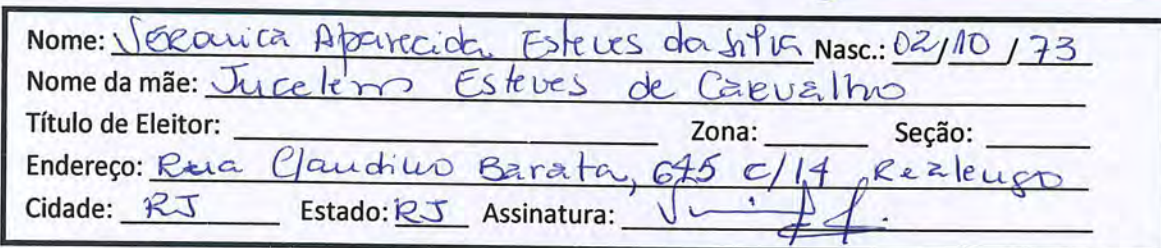 Nome: Veronica Aparecida Esteves da Silva Nasc.: 02/10/73
Nome da mãe: Esteves de Carvalho
Título de Eleitor: Zona: Seção:
Endereço: Rua Claudino Barata, 675 c/14 Realengo
Cidade: RJ Estado: RJ Assinatura: